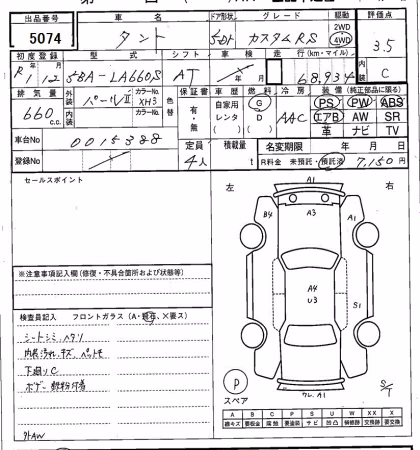 出品番号 車名 ドア形状 グレード 駆動 評価点
5074 タント 5ドア カスタムRS 2WD 4WD 3.5
初度登録 型式 シフト 車検 走行(km・マイル) 内装
R1年12月 5BA-LA660S AT 年 月 68,934 C
排気量 外装 パールⅡ カラーNo. XH3 色替 保証書 車歴 燃料 冷房 装備(純正部品に限る)
660 c.c. 内装 カラーNo. 有・無 自家用 レンタ G D AAC PS PW ABS
エアB AW SR
革 ナビ TV
車台No 0015388 定員 積載量 名変期限 年 月 日
登録No 4人 t R料金 未預託・預託済 7,150円
セールスポイント
左 右
A1
B4 A3 A1
A4
U3 S1
※注意事項記入欄(修復・不具合箇所および状態等)
検査員記入 フロントガラス(A・飛石、×要ス)
シートシミ、ヘタリ
内装汚れ、キズ
下廻りC
ボデー 鉄粉付着
外AW
P
スペア
A1
S/T
A B C P S U W XX X
線キズ 要板金 腐蝕 要塗装 サビ 凹凸 補修跡 交換跡 要交換